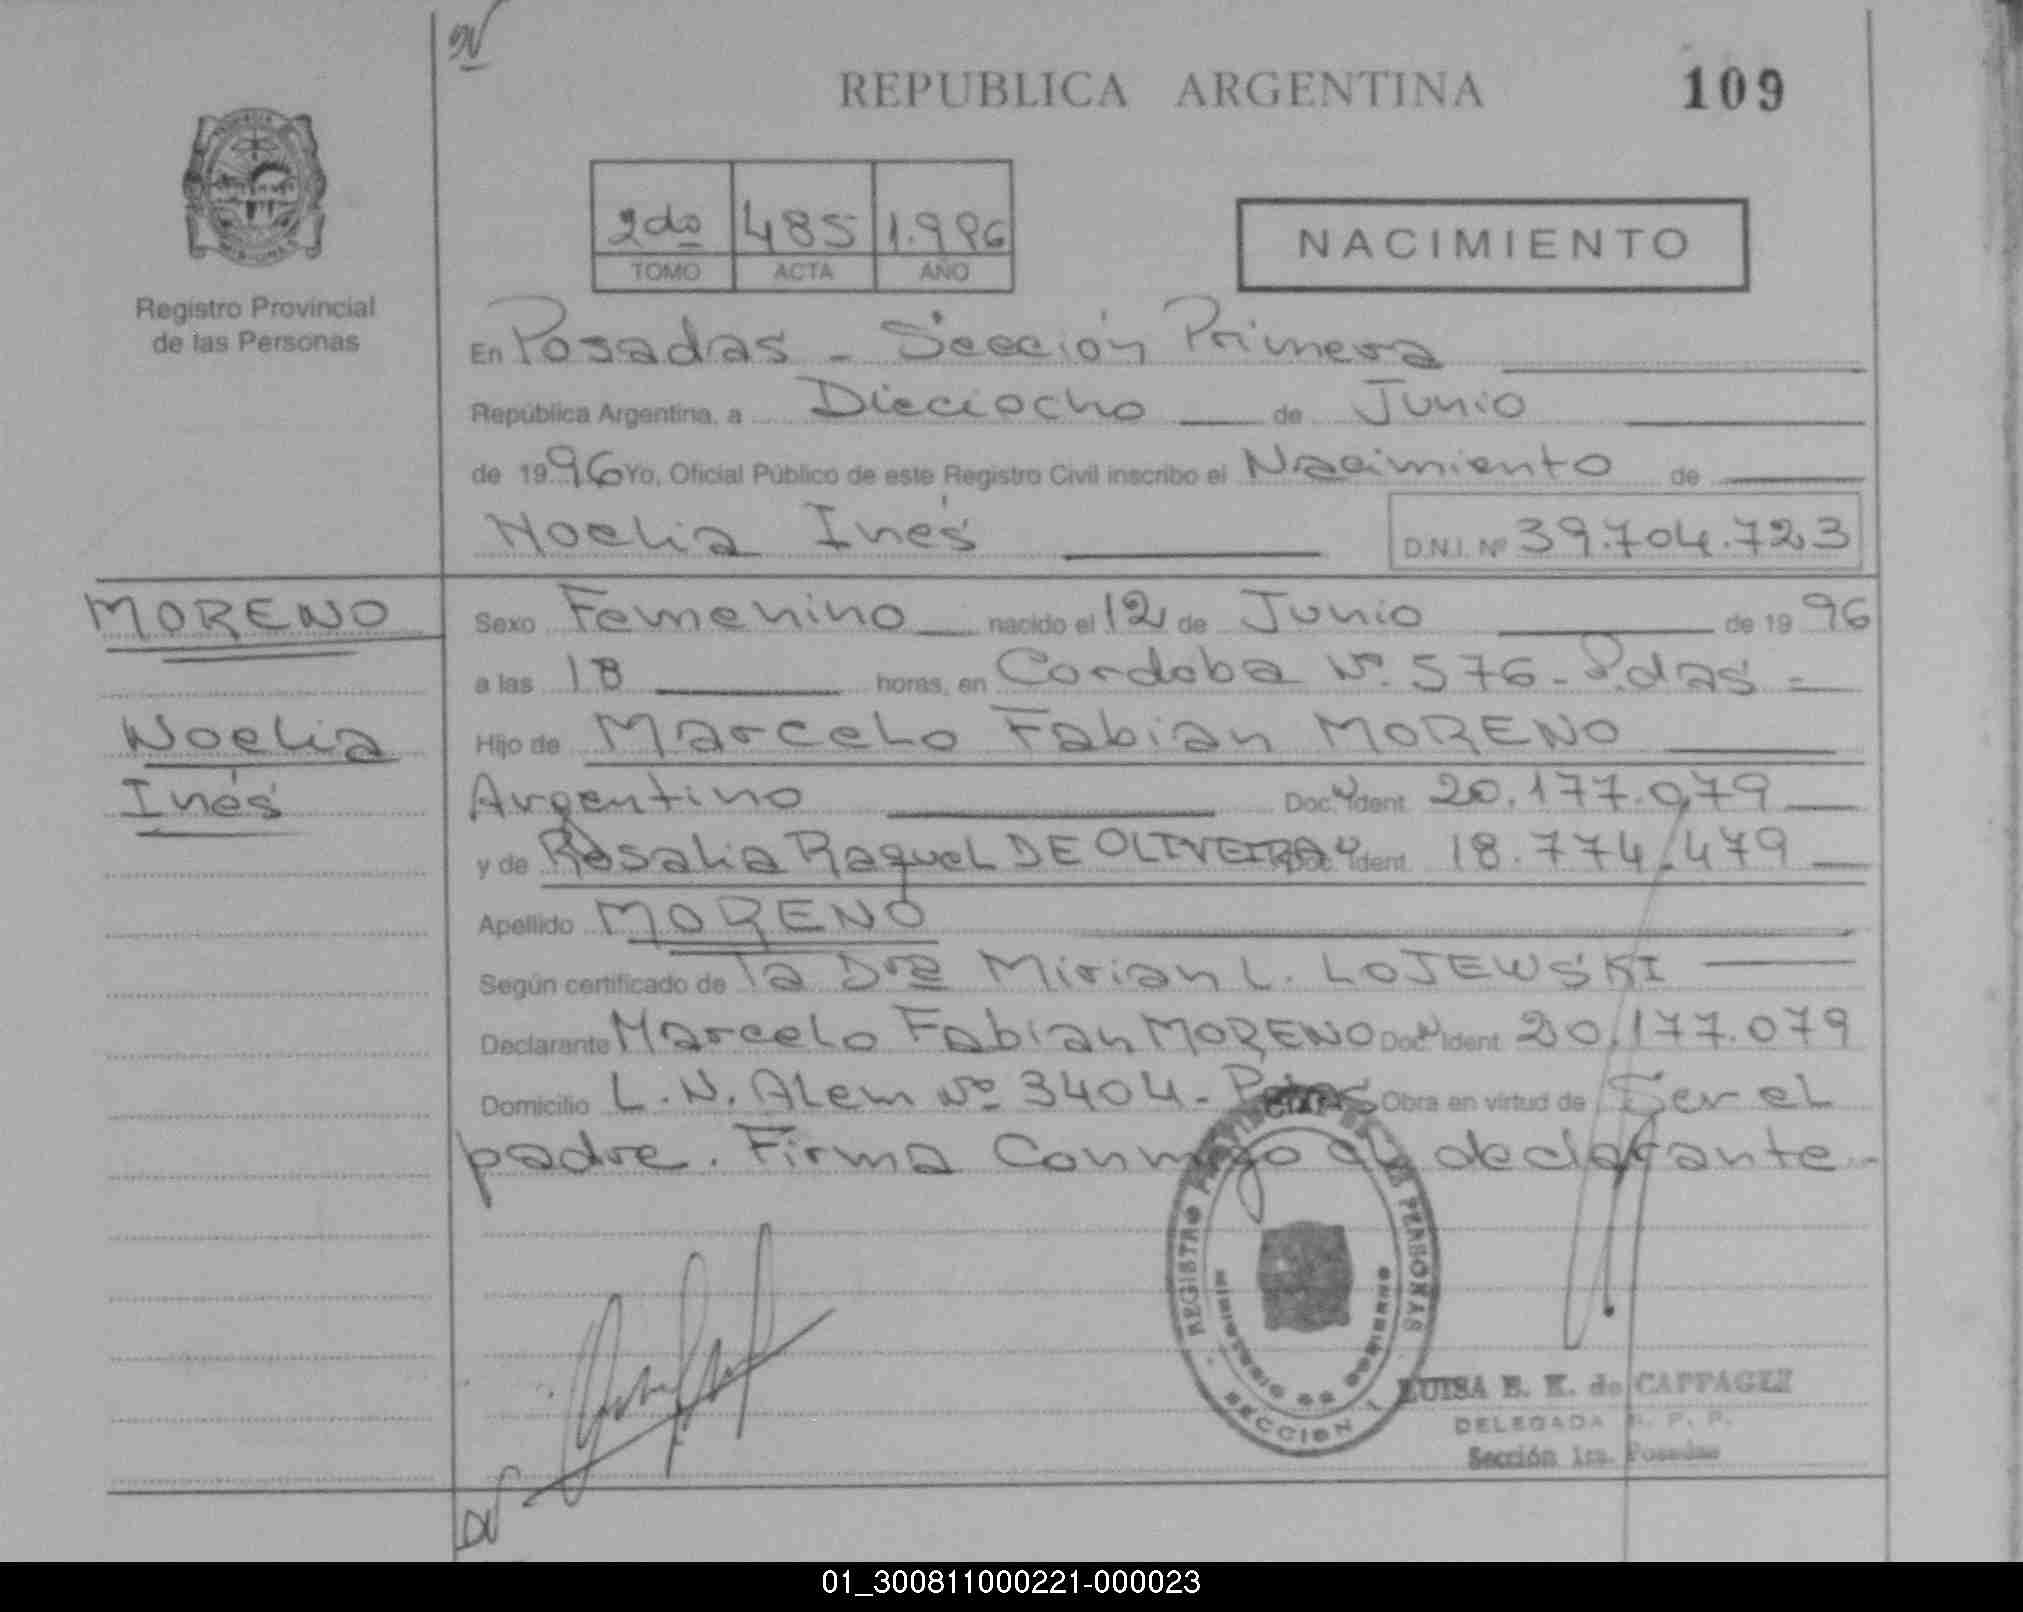 REPUBLICA ARGENTINA 109
2do 485 1.996
TOMO ACTA AÑO
NACIMIENTO
Registro Provincial
de las Personas
En Posadas - Sección Primera
República Argentina, a Dieciocho de Junio
de 1996 Yo, Oficial Público de este Registro Civil inscribo el Nacimiento de
Noelia Inés D.N.I. Nº 39.704.723
MORENO
Noelia
Inés
Sexo Femenino nacido el 12 de Junio de 1996
a las 18 horas, en Cordoba Nº. 576 - P.das -
Hijo de Marcelo Fabian MORENO
Argentino Doc. Ident. 20.177.079
y de Rosalia Raquel DE OLIVEIRA Doc. Ident. 18.774.479
Apellido MORENO
Según certificado de la Dra Mirian L. LOJEWSKI
Declarante Marcelo Fabian MORENO Doc. Ident. 20.177.079
Domicilio L. N. Alem Nº 3404 - Obra en virtud de Ser el
padre. Firma Conmigo el declarante -
REGISTRO PROVINCIAL DE LAS PERSONAS
MINISTERIO DE GOBIERNO
SECCION 1
LUISA E. K. de CAFFAGLI
DELEGADA R. P. P.
Sección 1ra. Posadas
01_300811000221-000023